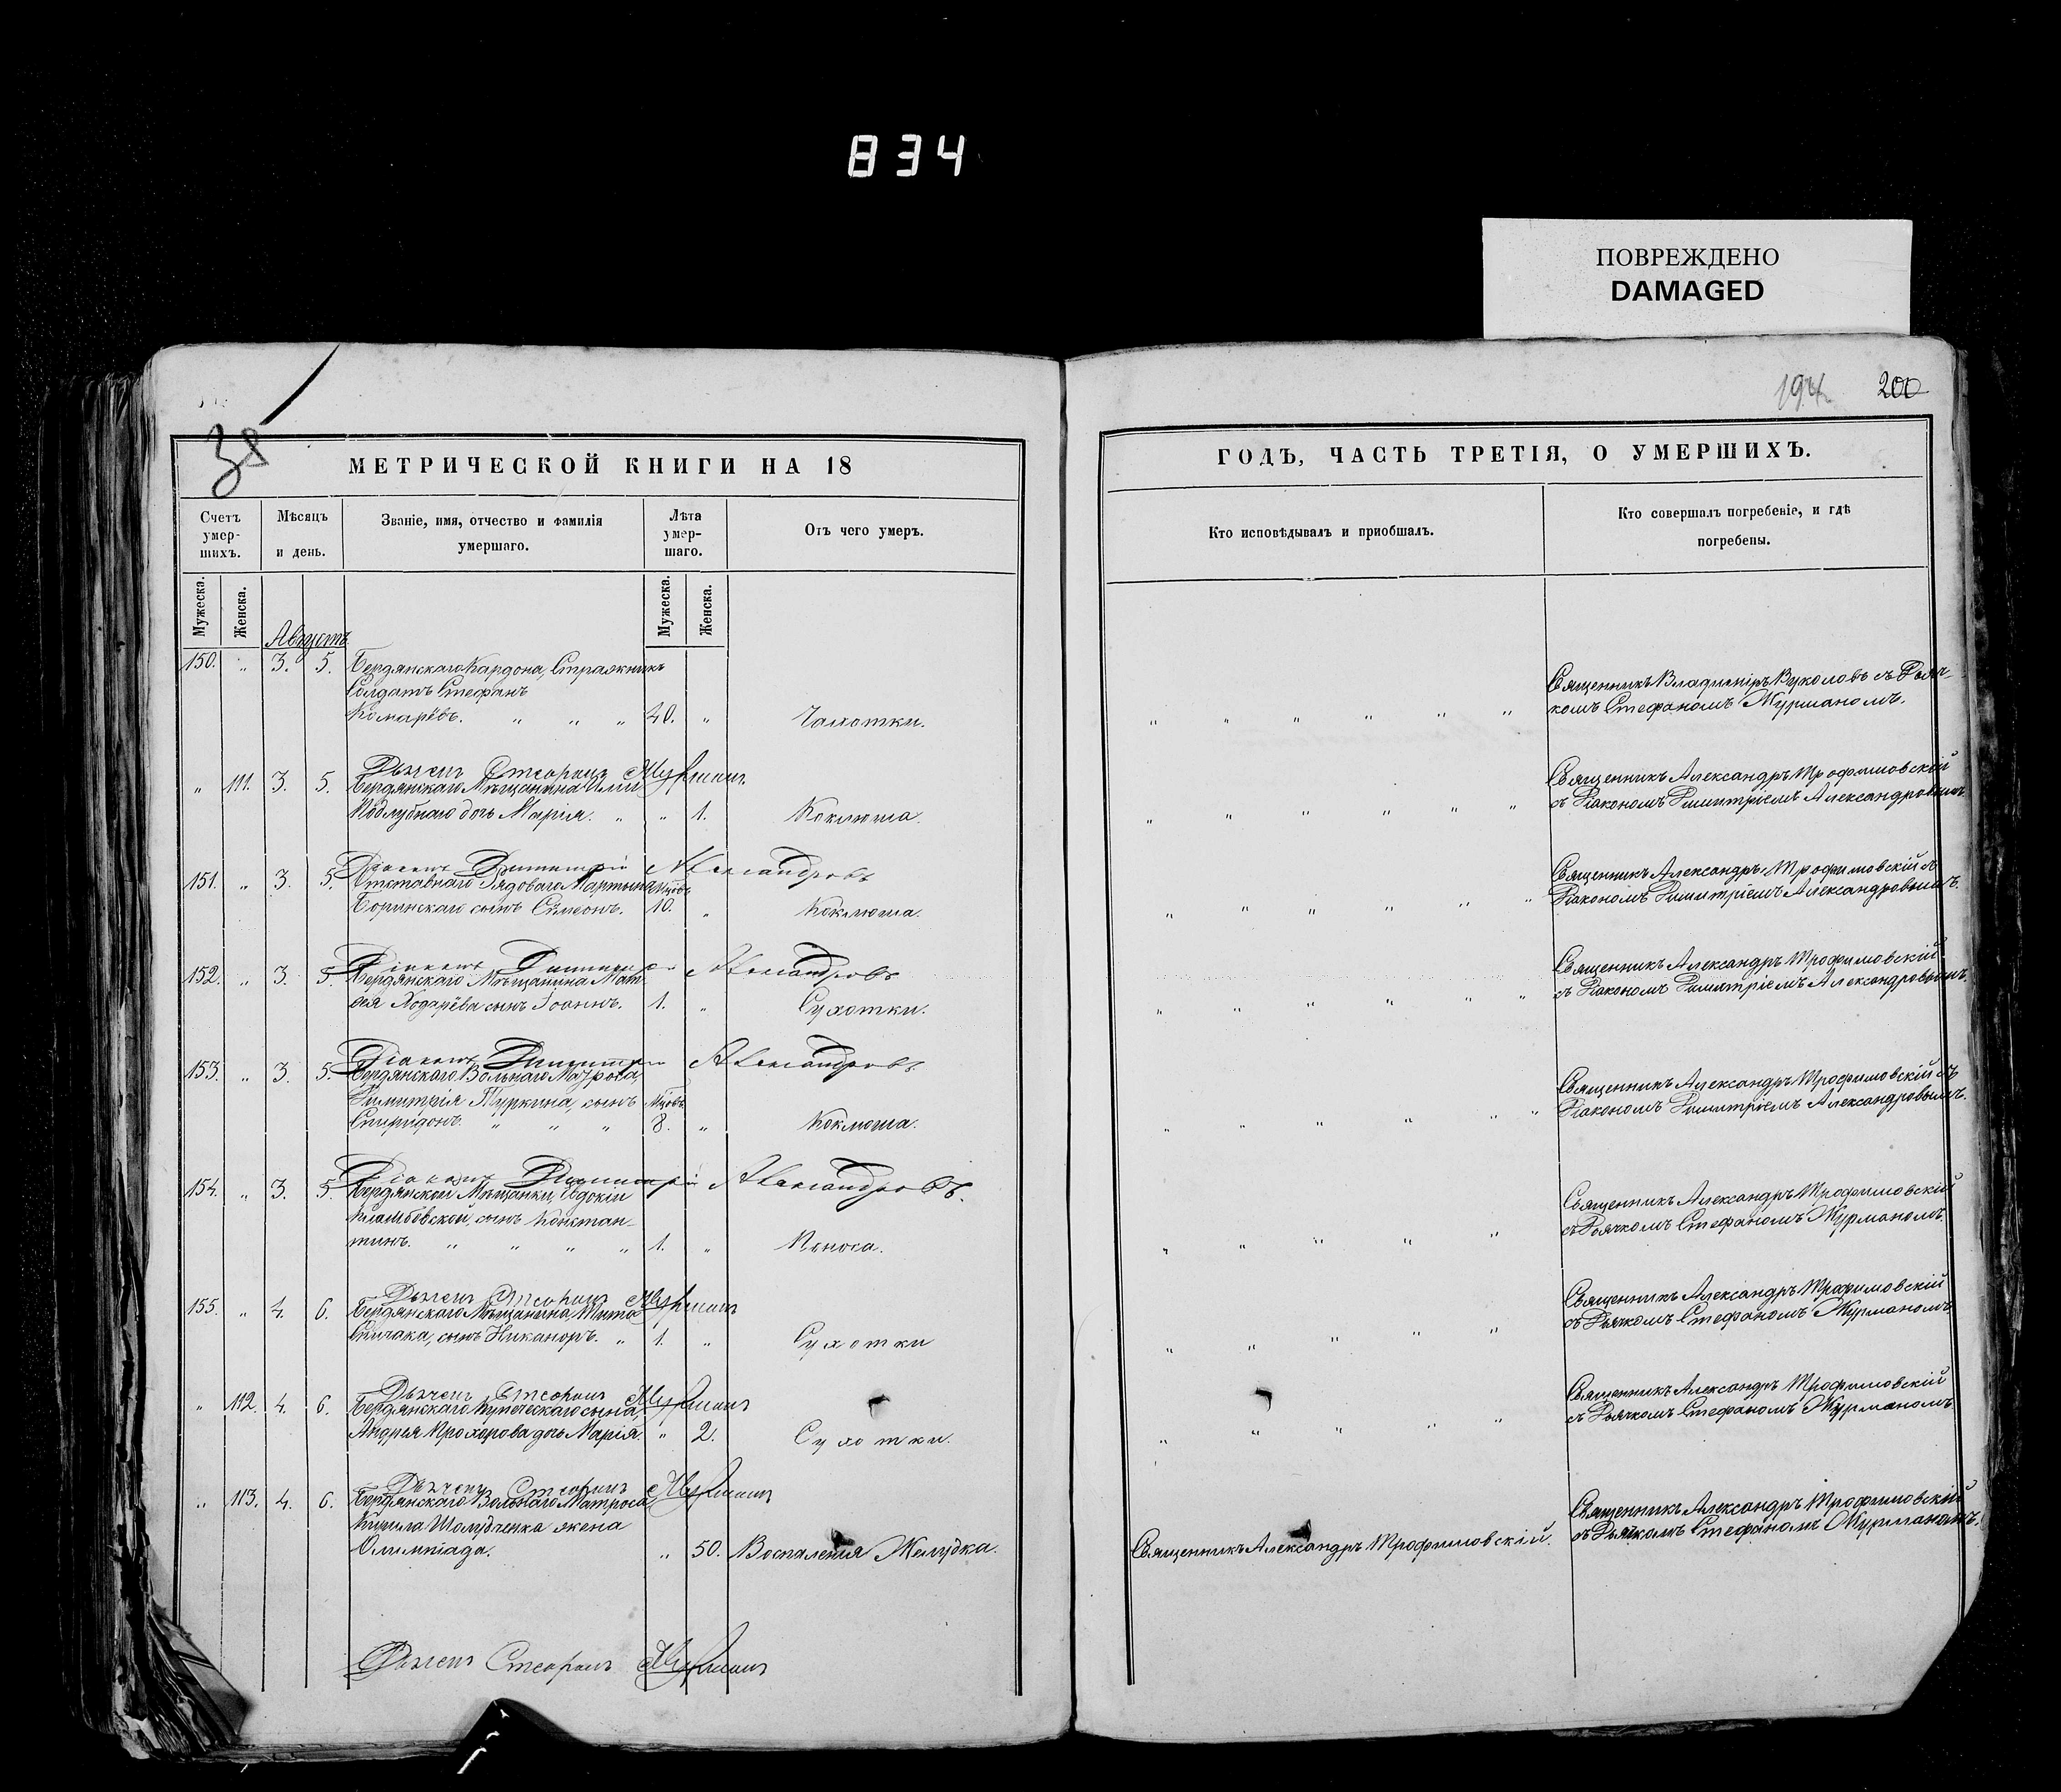 834
ПОВРЕЖДЕНО
DAMAGED
194
200
38
МЕТРИЧЕСКОЙ КНИГИ НА 18
ГОДЪ, ЧАСТЬ ТРЕТІЯ, О УМЕРШИХЪ.
Счетъ умер-шихъ.
Мѣсяцъ и день.
Званіе, имя, отчество и фамилія умершаго.
Лѣта умер-шаго.
Отъ чего умеръ.
Кто исповѣдывалъ и приобщалъ.
Кто совершалъ погребеніе, и гдѣ погребены.
Мужеска.
Женска.
Мужеска.
Женска.
Августъ
150. " 3. 5. Бердянскаго Кардона, Стражникъ
Солдатъ Стефанъ
Комарёвъ. " " " 40. " Чахотки. " " " " " "
Священникъ Владиміръ Вуколовъ съ Дьяч-
комъ Стефаномъ Журманомъ.
Дьячекъ Стефанъ Журманъ
" 111. 3. 5. Бердянскаго Мѣщанина
дочь Марія. " " 1. Коклюша. " " " " " "
Священникъ Александръ Трофимовскій
съ Діакономъ Димитріемъ Александровымъ.
Діаконъ Димитрій Александровъ
151. " 3. 5. Отставнаго Рядоваго Мартына Мцовъ
сынъ Симеонъ. 10. " Коклюша. " " " " " "
Священникъ Александръ Трофимовскій съ
Діакономъ Димитріемъ Александровымъ.
Діаконъ Димитрій Александровъ
152. " 3. 5. Бердянскаго Мѣщанина Мат-
фея сынъ Іоаннъ. 1. " Сухотки. " " " " " "
Священникъ Александръ Трофимовскій
съ Діакономъ Димитріемъ Александровымъ.
Діаконъ Димитрій Александровъ
153. " 3. 5. Бердянскаго Вольнаго Матроса,
Димитрія Туркина, сынъ Мцовъ
Спиридонъ. " " " 8. " Коклюша. " " " " " "
Священникъ Александръ Трофимовскій съ
Діакономъ Димитріемъ Александровымъ.
Діаконъ Димитрій Александровъ.
154. " 3. 5. Бердянской Мѣщанки, Евдокіи
сынъ Констан-
тинъ. " " " " 1. " Поноса. " " " " "
Священникъ Александръ Трофимовскій
съ Дьячкомъ Стефаномъ Журманомъ.
Дьячекъ Стефанъ Журманъ
155. " 4. 6. Бердянскаго Мѣщанина, Тита
Спичака, сынъ Никаноръ. " 1. " Сухотки " " " " "
Священникъ Александръ Трофимовскій
съ Дьячкомъ Стефаномъ Журманомъ
Дьячекъ Стефанъ Журманъ
" 112. 4. 6. Бердянскаго Купеческаго сына,
Андрея Прохорова дочь Марія. " 2. Сухотки. " " " " "
Священникъ Александръ Трофимовскій
съ Дьячкомъ Стефаномъ Журманомъ
Дьячекъ Стефанъ Журманъ
" 113. 4. 6. Бердянскаго Вольнаго Матроса,
Кирила Шолудченка жена
Олимпіада. " 50. Воспаленія Желудка.
Священникъ Александръ Трофимовскій.
Священникъ Александръ Трофимовскій
съ Дьячкомъ Стефаномъ Журманомъ.
Дьячекъ Стефанъ Журманъ